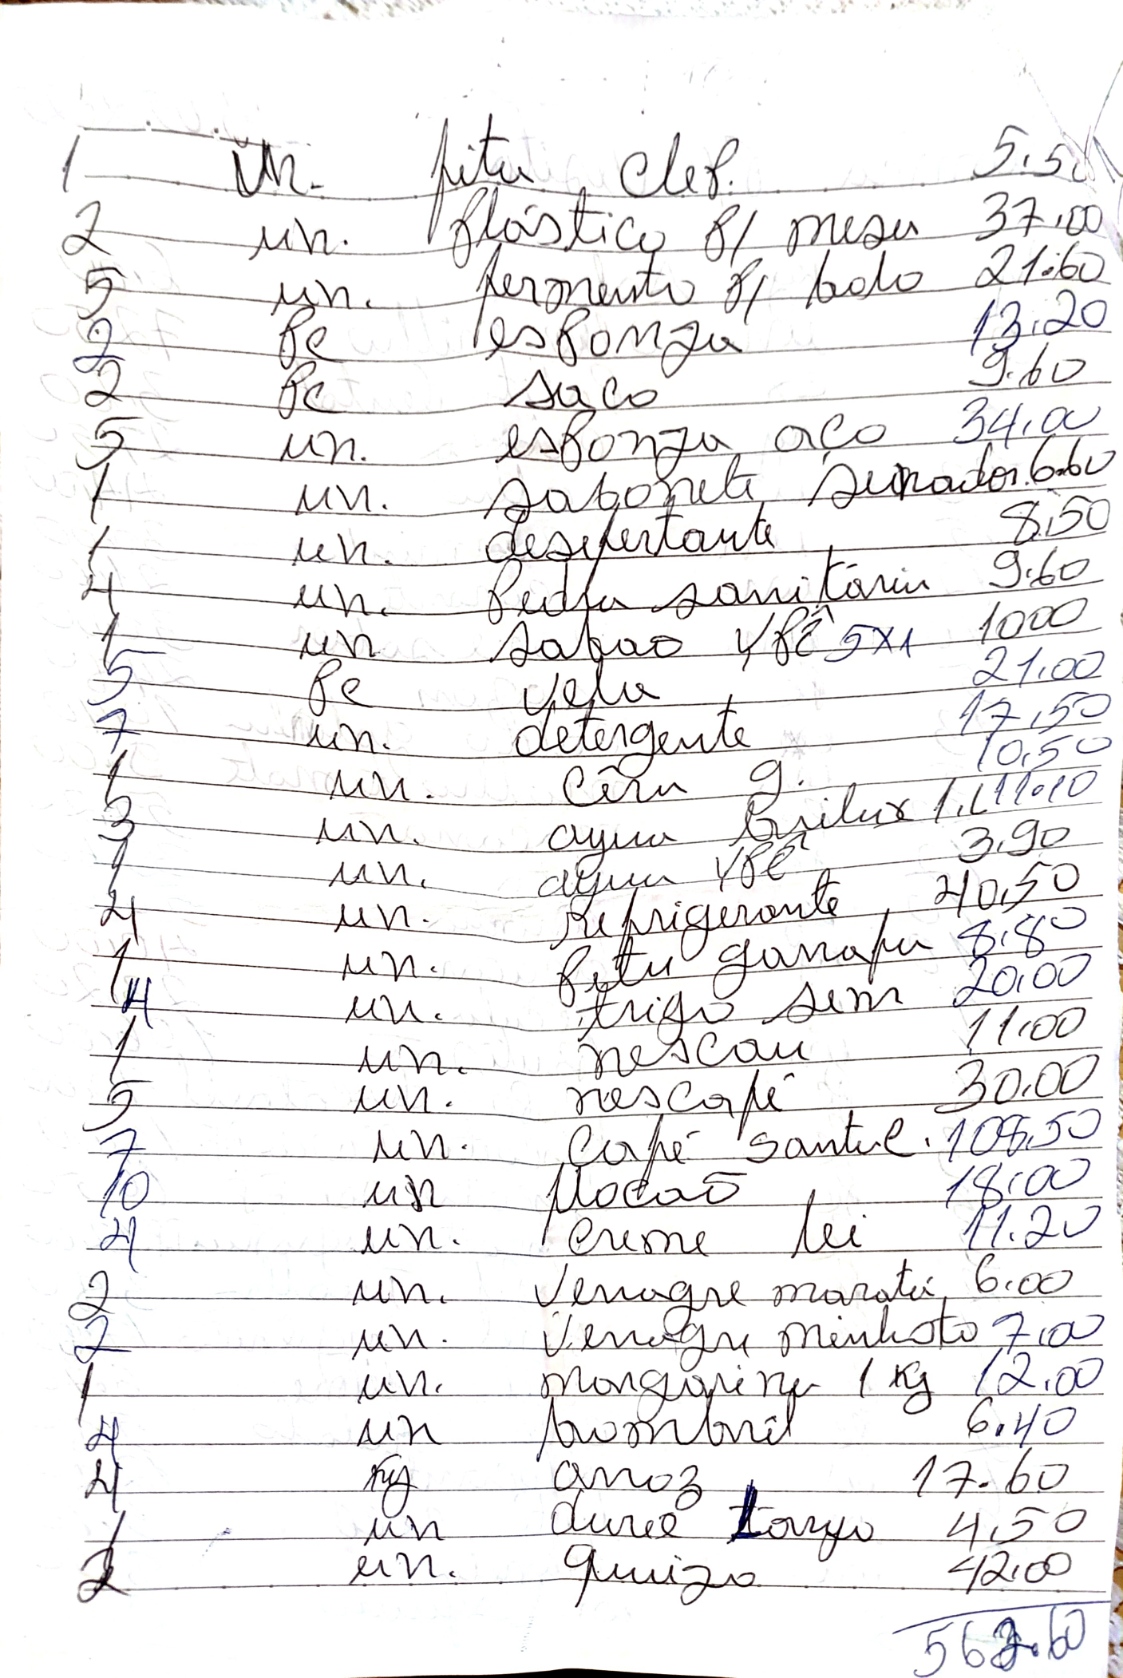 1 un. fita clef. 5.50
2 un. plástico p/ mesa 37.00
5 un. fermento p/ bolo 21.60
2 pc esponza 13.20
2 pc saco 9.60
5 un. esponza aço 34.00
1 un. sabonete 6.60
1 un. desifertante 8.50
4 un. Pedra sanitária 9.60
1 un sabao YPÊ 5x1 1000
5 pc vela 21.00
7 un. detergente 17.50
1 un. Cêra g. 10.50
3 un. agua Brilux 1.L 11.10
1 un. agua YPÊ 3.90
4 un. Refrigerante 40.50
1 un. Pitu garrafa 8.80
4 un. trigo sem 20.00
1 un. nescau 11.00
5 un. nescafé 30.00
7 un. Café santa c. 108.50
10 un flocão 18.00
4 un. creme lei 11.20
2 un. venagre maratá 6.00
2 un. venagre minhoto 7.00
1 un. margarina 1 Kg 12.00
4 un bombril 6.40
4 Kg arroz 17.60
1 un 4.50
2 un. 42.00